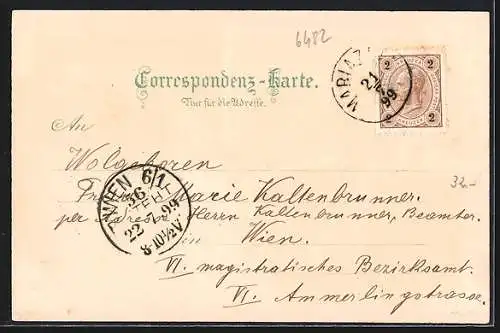 6482
Correspondenz-Karte.
Nur für die Adresse.
MARIAZ
21
99
2 2
2 2
KREUZER
An
Wolgeboren
Marie Kaltenbrunner.
per Adresse Herrn Kaltenbrunner, Beamter.
Wien.
VI. magistratisches Bezirksamt.
VI. Ammerlingstrasse.
WIEN 6/1
22 7 99
8-10½V
32.-